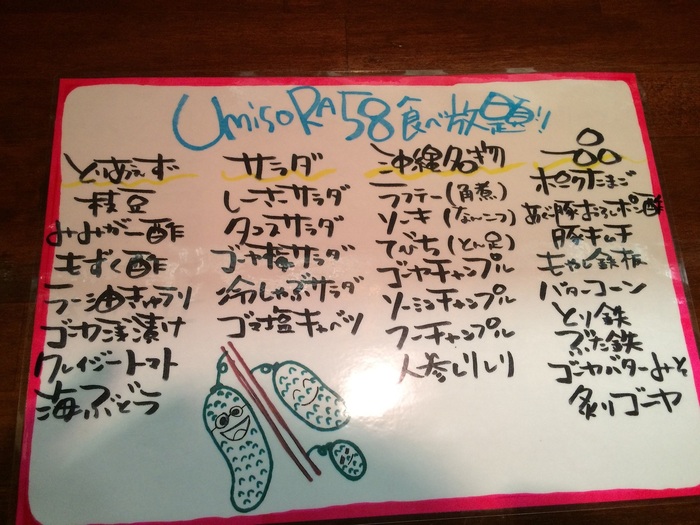 UmisoRA58食べ放題!!
とりあえず
枝豆
みみがー酢
もずく酢
ラー油きゅうり
ゴーヤ浅漬け
クレイジートマト
海ぶどう
サラダ
しーさーサラダ
タコスサラダ
ゴーヤ梅サラダ
冷しゃぶサラダ
ゴマ塩キャベツ
沖縄名物
ラフテー(角煮)
ソーキ(なんこつ)
てびち(とん足)
ゴーヤチャンプル
ソーミンチャンプル
フーチャンプル
人参しりしり
一品
ポークたまご
あぐー豚おろしポン酢
豚キムチ
もやし鉄板
バターコーン
とり鉄
ぶた鉄
ゴーヤバターみそ
炙りゴーヤ